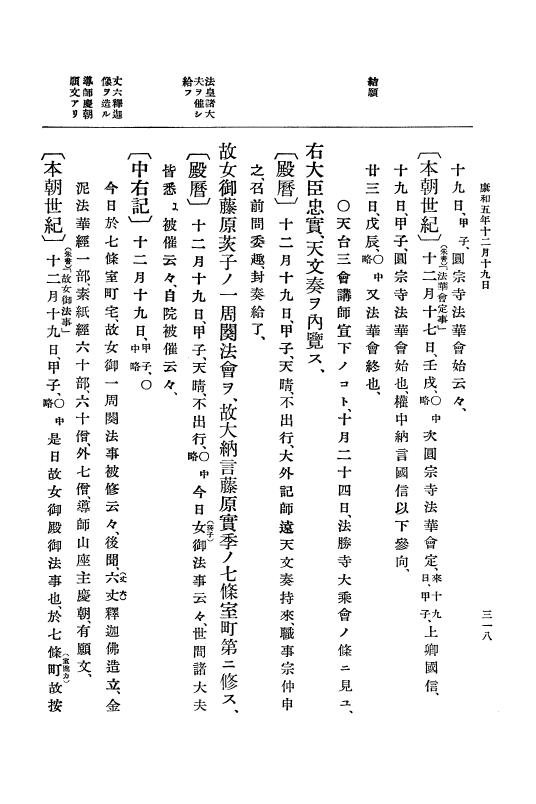 康和五年十二月十九日
三一八
結願
法皇諸大
夫ヲ催シ
給フ
丈六釋迦
像ヲ造ル
導師慶朝
願文アリ
十九日、甲子、圓宗寺法華會始云々、
〔本朝世紀〕(朱書)「法華會定事」十二月十七日、壬戌、○中略 次圓宗寺法華會定、來十九日、甲子、上卿國信、
十九日、甲子、圓宗寺法華會始也、權中納言國信以下參向、
廿三日、戊辰、○中略 又法華會終也、
○天台三會講師宣下ノコト、十月二十四日、法勝寺大乘會ノ條ニ見ユ、
右大臣忠實、天文奏ヲ內覽ス、
〔殿曆〕十二月十九日、甲子、天晴、不出行、大外記師遠天文奏持來、職事宗仲申
之、召前問委趣封奏給了、
故女御藤原苡子ノ一周閱法會ヲ、故大納言藤原實季ノ七條室町第ニ修ス、
〔殿曆〕十二月十九日、甲子、天晴、不出行、○中略 今日女御(苡子)法事云々、世間諸大夫
皆悉ユ被催云々、自院被催云々、
〔中右記〕十二月十九日、甲子、○中略
今日於七條室町宅、故女御一周閱法事被修云々、後聞、六丈(丈六)釋迦佛造立、金
泥法華經一部、素紙經六十部、六十僧、外七僧、導師山座主慶朝、有願文、
〔本朝世紀〕(朱書)「故女御法事」十二月十九日、甲子、○中略 是日故女御殿御法事也、於七條町(室脫カ)故按